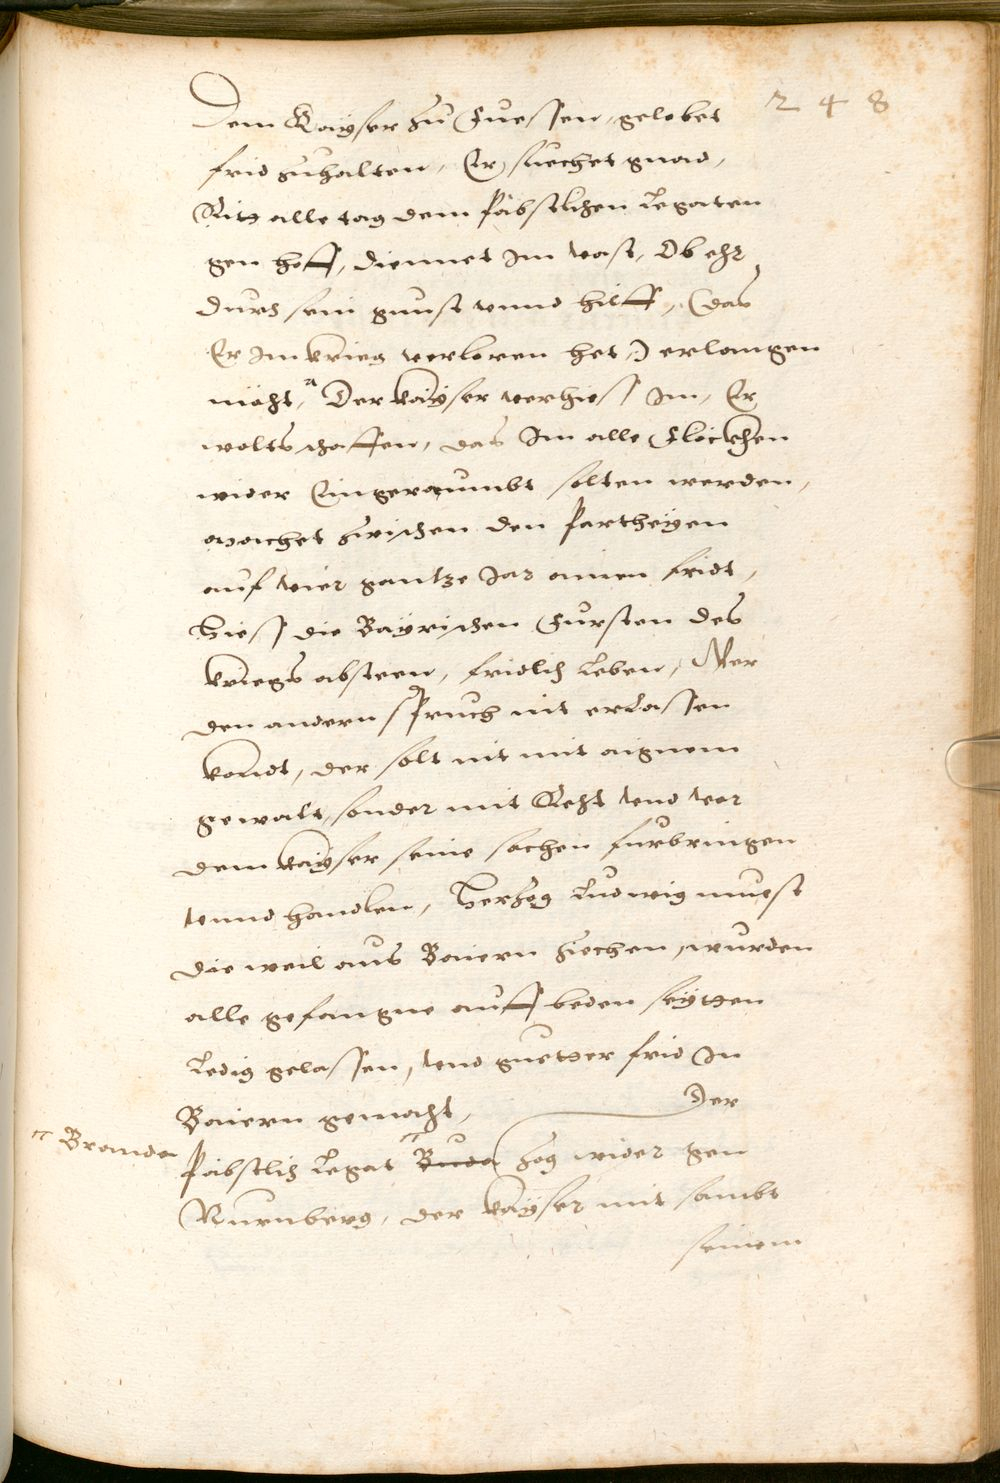 248
Dem Kayser zu Fuessen, gelobet
frid zuhalten, Er suechet gnad,
Ritt alle tag dem Päbstlichen Legaten
gen hoff, diennet Im vast, Ob ehr
durch sein gunst vnnd hilff, (das
Er Im krieg verloren het,) erlangen
möcht, Der kayser verhiess Im, Er
wolts schaffen, das Im alle Fleckhen
wider Eingeraumbt solten werden,
machet zwischen den Partheyen
auf vier gantze Jar ainen fridt,
Hiess die Bayrischen Fursten des
kriegs absteen, fridlich Leben, Wer
den andern spruch nit erlassen
kondt, der solt nit mit aignem
gewalt, sonder mit Recht vnd vor
dem kayser seine sachen furbringen
vnnd handlen, Hertzog Ludwig muest
die weil aus Baiern ziechen, wurden
alle gefangne auff beden seytten
Ledig gelassen, vnd guetter frid In
Baiern gemacht, Der
Päbstlich Legat Buda zog wider gen
Branda
Nurnberg, der kayser mit sambt
seinem